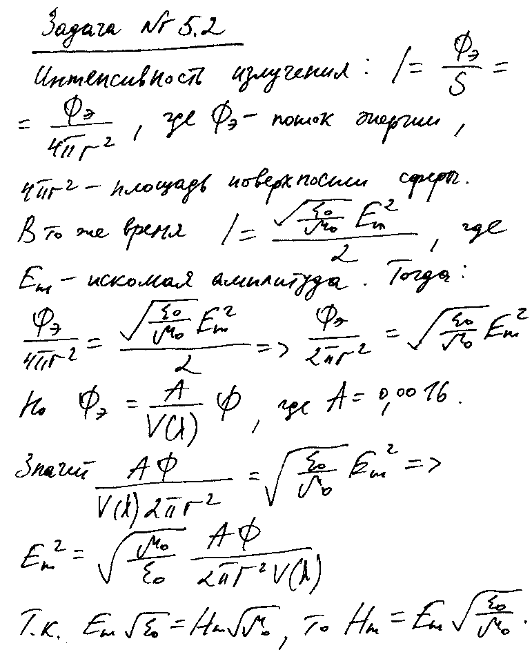 Задача № 5.2
Интенсивность излучения: I = Φэ/S =
= Φэ/4πr², где Φэ - поток энергии,
4πr² - площадь поверхности сферы.
В то же время I = √(ε₀/μ₀) Em²/2, где
Em - искомая амплитуда. Тогда:
Φэ/4πr² = √(ε₀/μ₀) Em²/2 => Φэ/2πr² = √(ε₀/μ₀) Em²
Но Φэ = A/V(λ) Φ, где A = 0,0016.
Значит AΦ/V(λ)2πr² = √(ε₀/μ₀) Em² =>
Em² = √(μ₀/ε₀) AΦ/2πr²V(λ)
Т.к. Em√ε₀ = Hm√μ₀, то Hm = Em√(ε₀/μ₀).